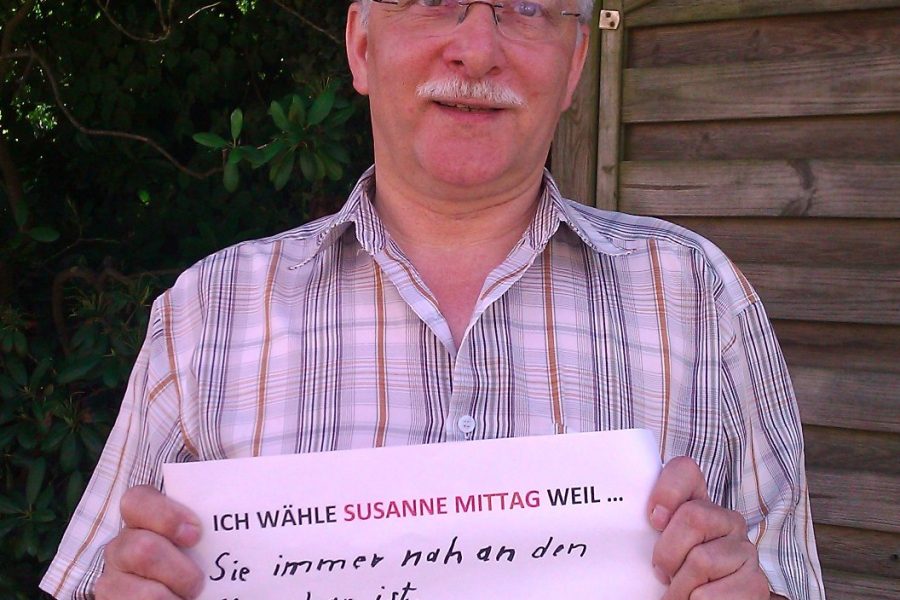 ICH WÄHLE SUSANNE MITTAG WEIL ...
Sie immer nah an den
ist